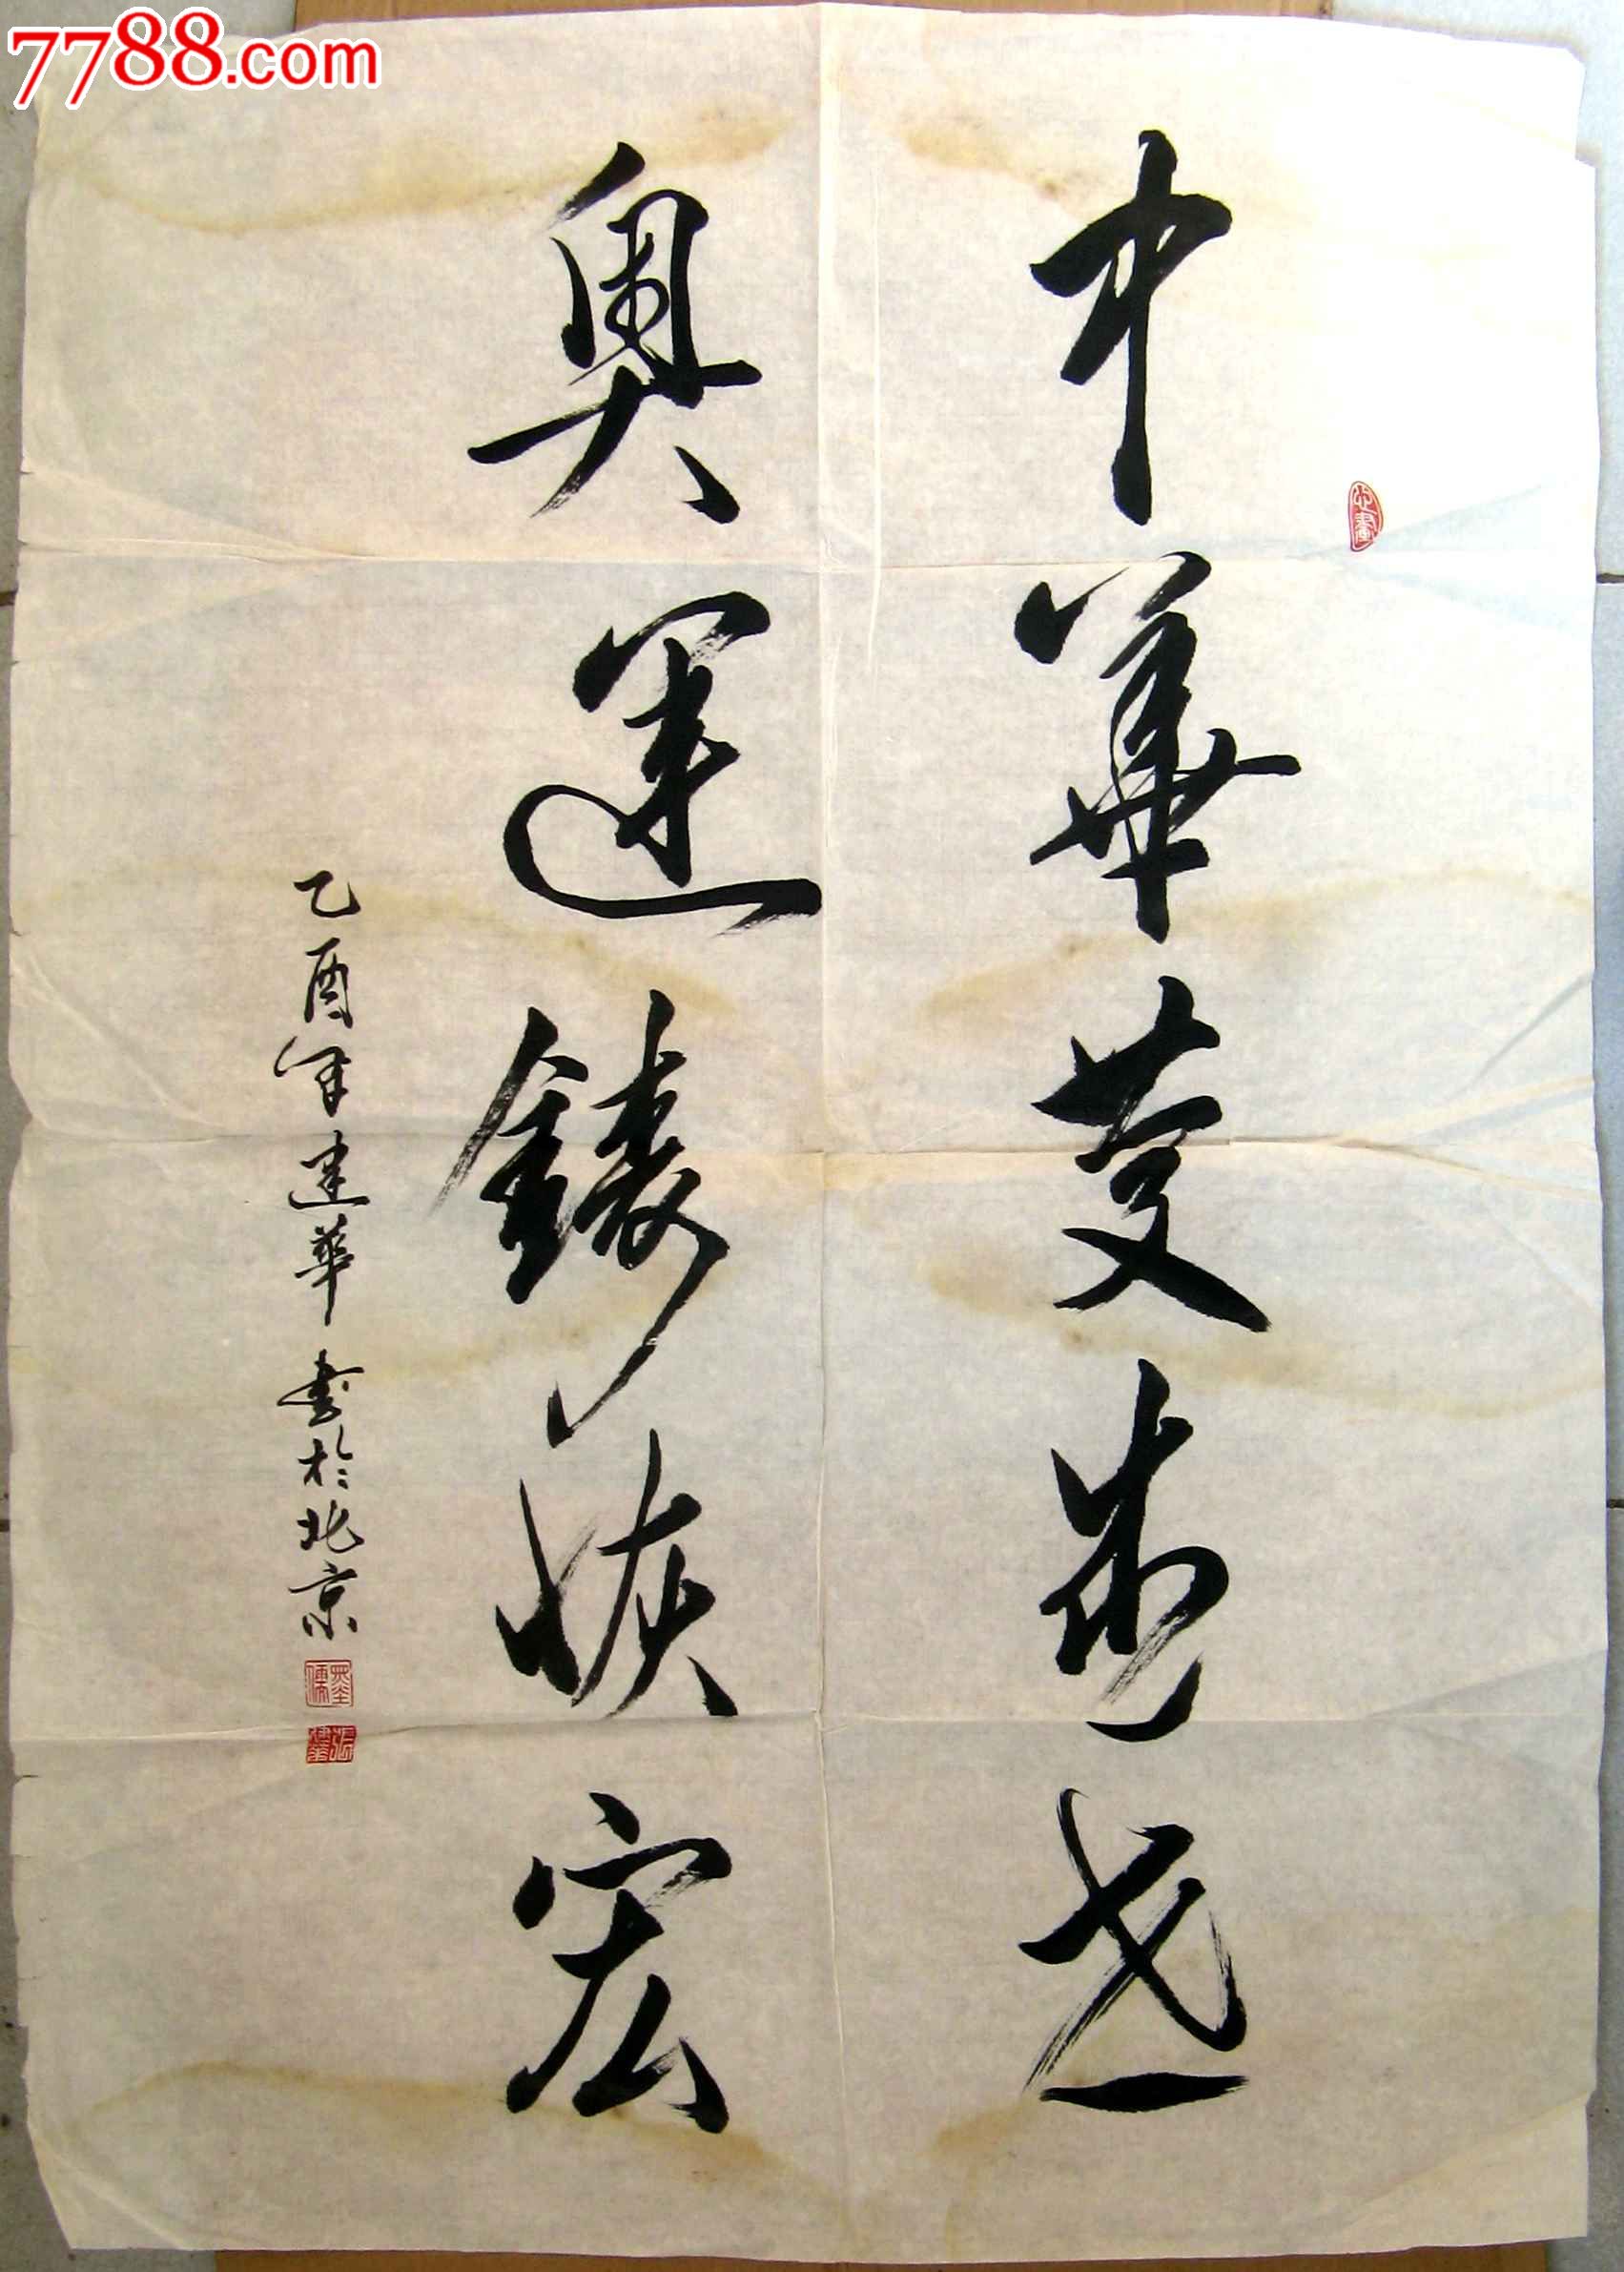 7788.com
中華
盛
奥運鑄恢宏
乙酉年建華書於北京